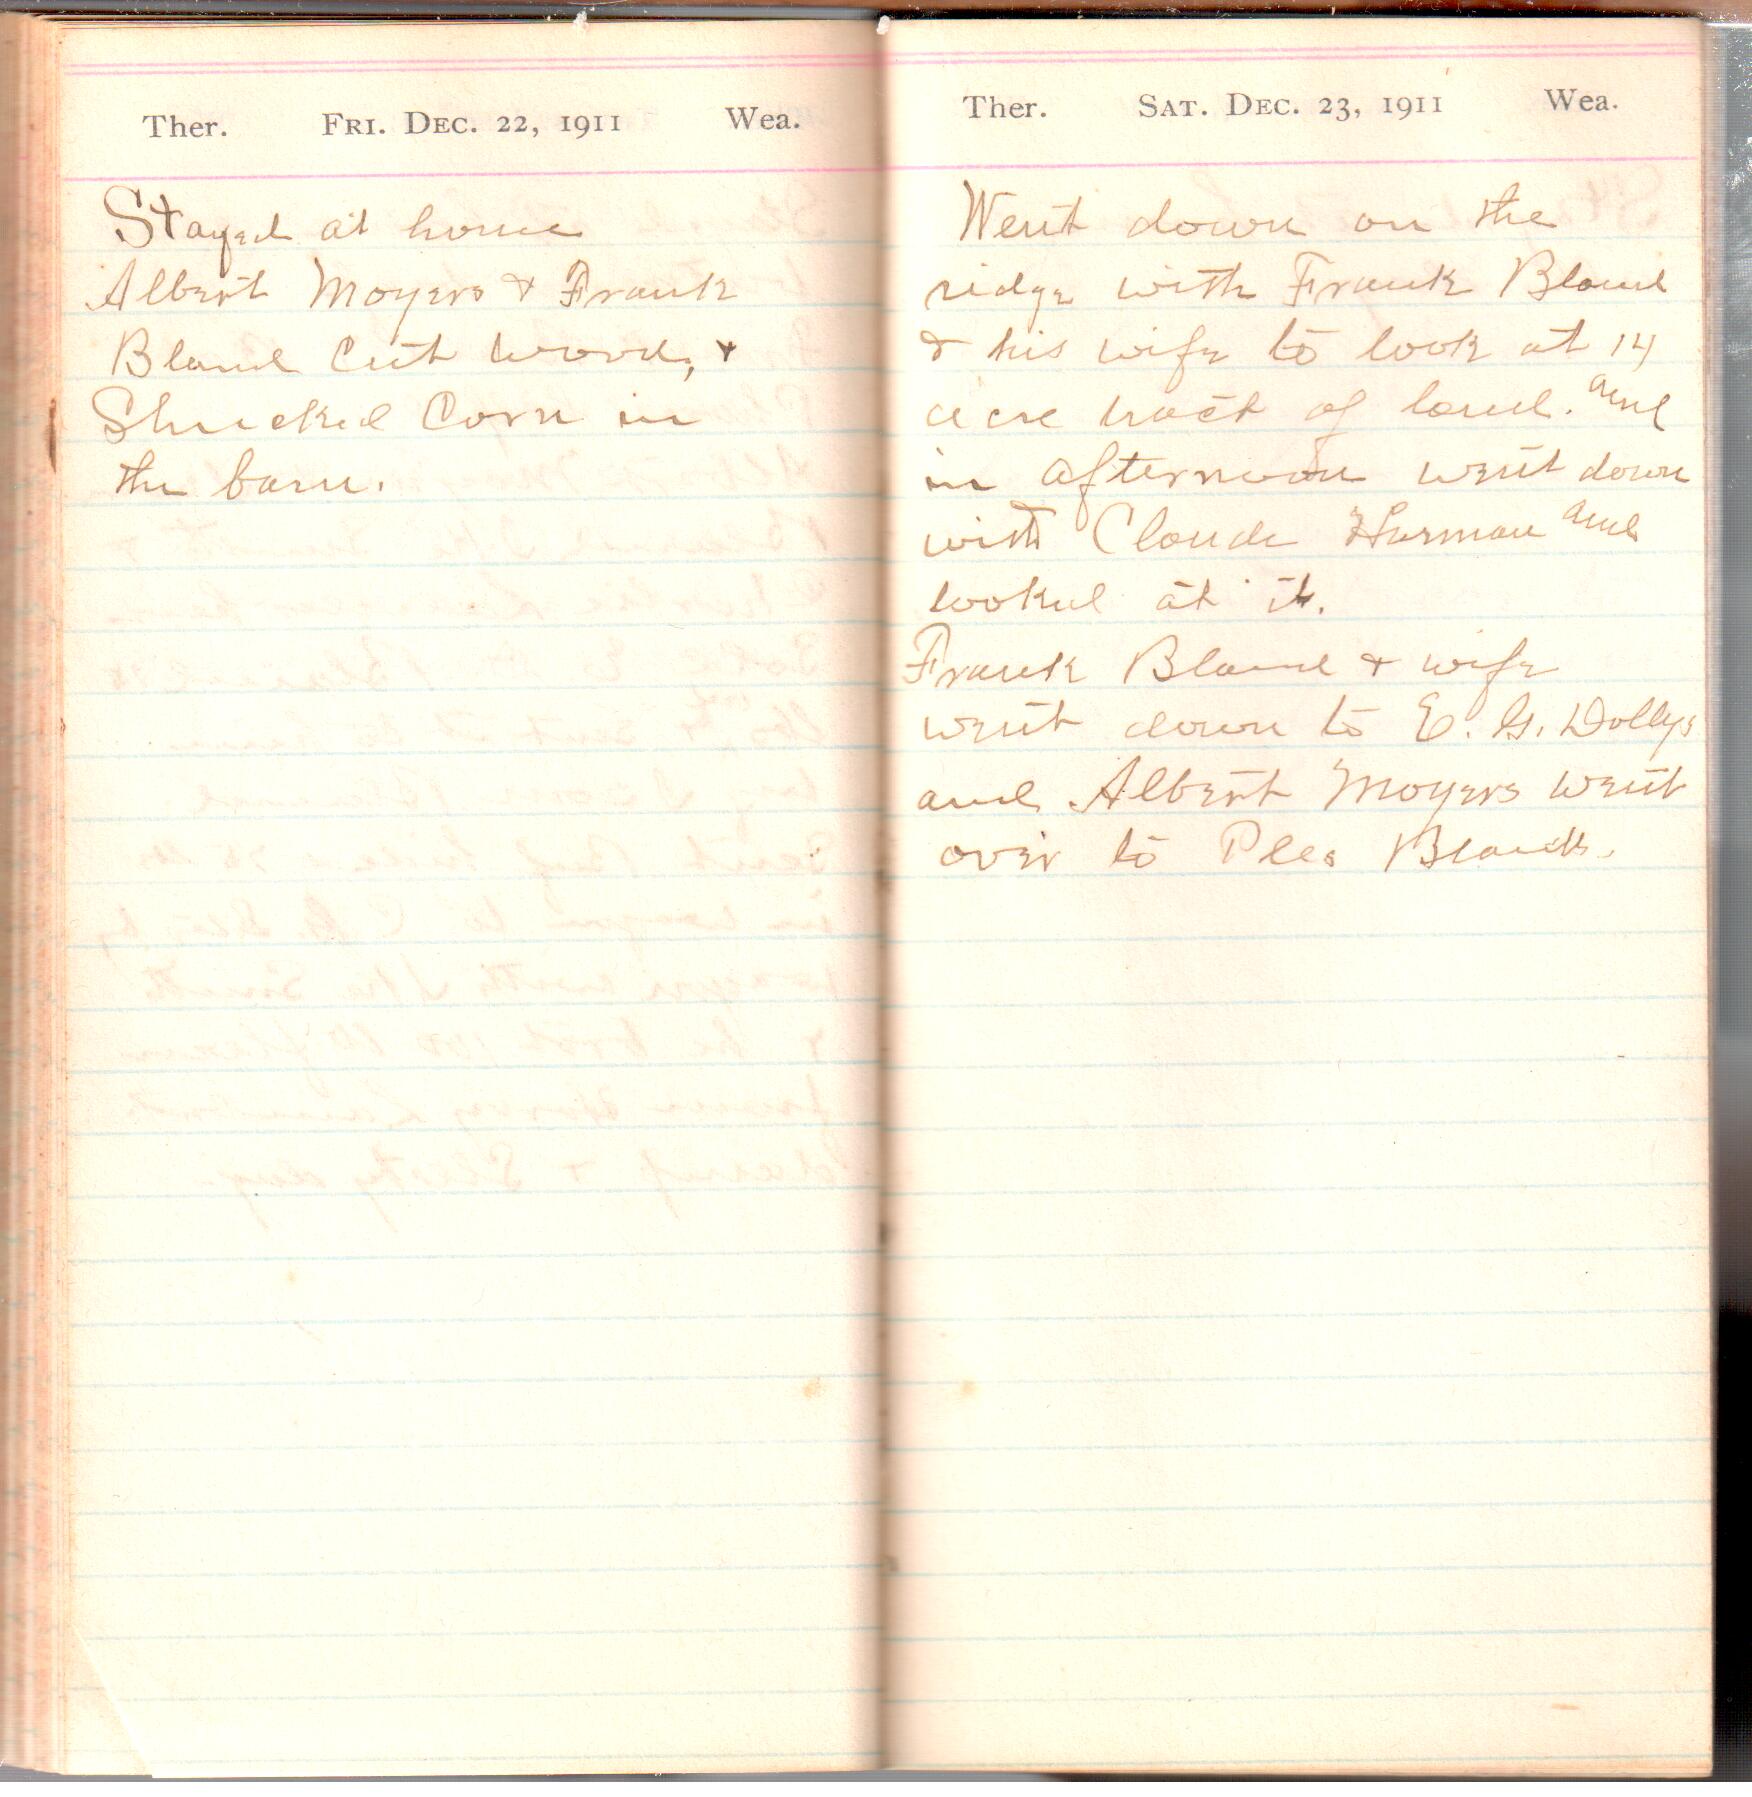 Ther. FRI. DEC. 22, 1911 Wea.
Stayed at home
Albert Moyers & Frank
Bland Cut wood, &
Shucked Corn in
the barn.
Ther. SAT. DEC. 23, 1911 Wea.
Went down on the
ridge with Frank Bland
& his wife to look at 14
acre tract of land. and
in afternoon went down
with Claude Harman and
looked at it.
Frank Bland & wife
went down to E. G. Dollys
and Albert Moyers went
over to Ples Blands.